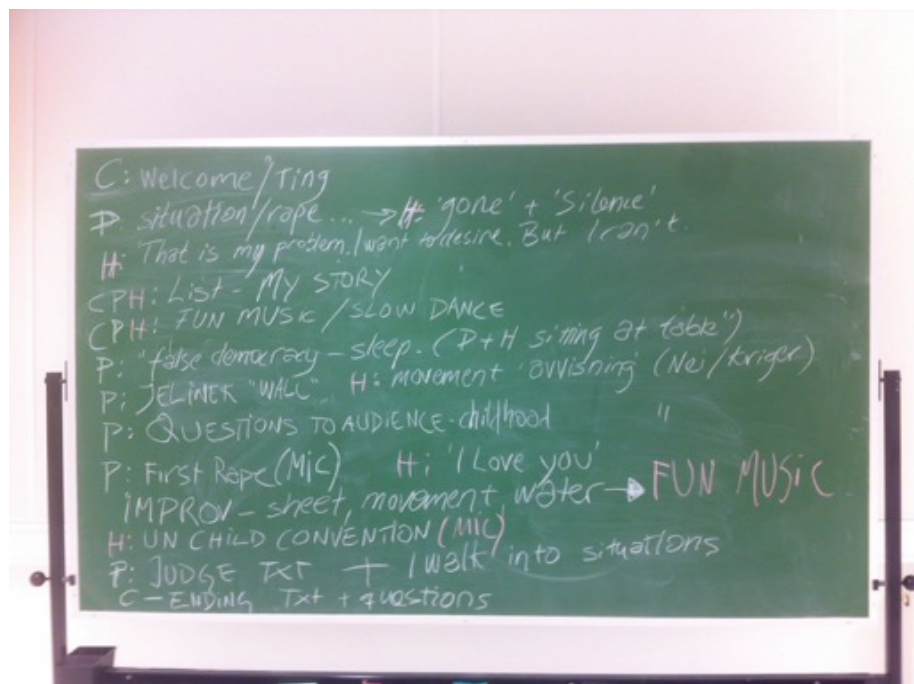 C: Welcome/Ting
P: situation/rape... → H: 'gone' + 'Silence'
H: That is my problem. I want to desire. But I can't.
CPH: LiST - MY STORY
CPH: FUN MUSIC / SLOW DANCE
P: "false democracy - sleep. (P+H sitting at table")
P: JELINEK "WALL" H: movement 'avvisning' (Nei/kriger)
P: QUESTIONS TO AUDIENCE - childhood "
P: First Rape (MiC) H: 'I Love you'
iMPROV - sheet, movement, water → FUN MUSiC
H: UN CHILD CONVENTION (MIC)
P: JUDGE TXT + I walk into situations
C - ENDING Txt + questions